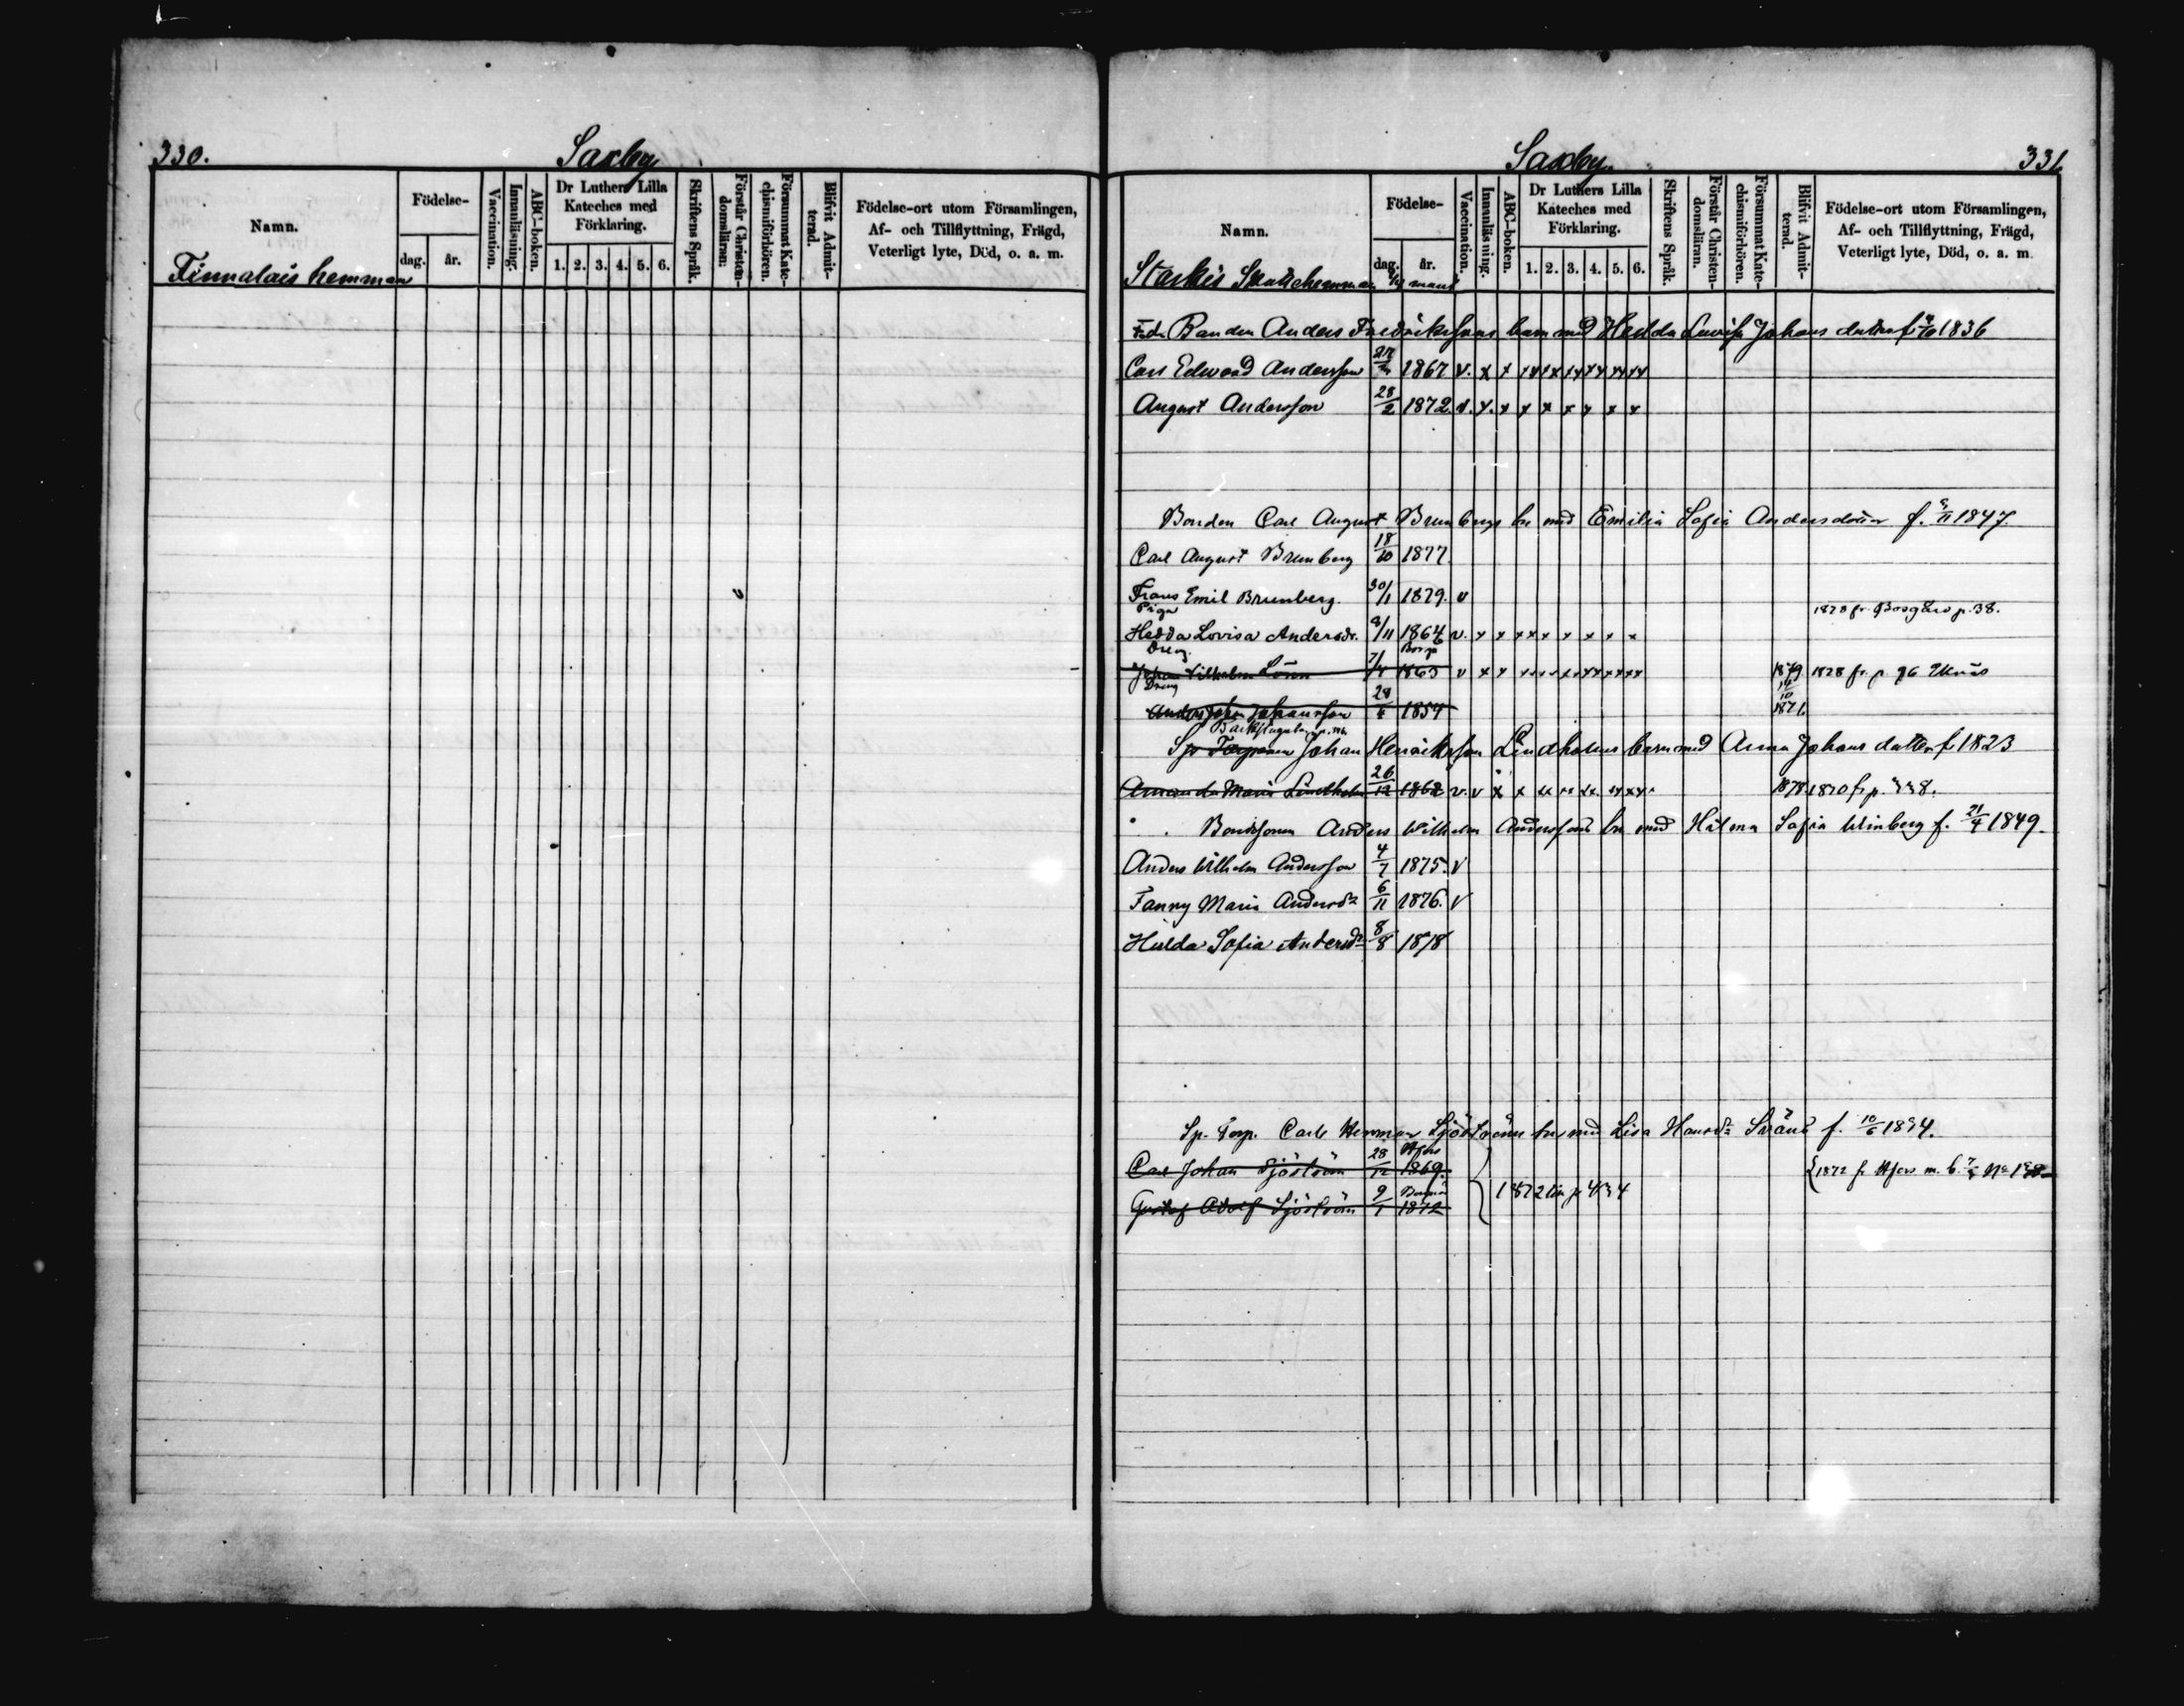 330.
Saxby
Namn.
Födelse-
dag. år.
Vaccination.
Innanläsning.
ABC-boken.
Dr Luthers Lilla
Kateches med
Förklaring.
1. 2. 3. 4. 5. 6.
Skriftens Språk.
Förstår Christen-
domsläran.
Försummat Kate-
chismiförhören.
Blifvit Admit-
terad.
Födelse-ort utom Församlingen,
Af- och Tillflyttning, Frägd,
Veterligt lyte, Död, o. a. m.
Finnalais hemman
Saxby
331
Namn.
Födelse-
dag. år.
Vaccination.
Innanläsning.
ABC-boken.
Dr Luthers Lilla
Kateches med
Förklaring.
1. 2. 3. 4. 5. 6.
Skriftens Språk.
Förstår Christen-
domsläran.
Försummat Kate-
chismiförhören.
Blifvit Admit-
terad.
Födelse-ort utom Församlingen,
Af- och Tillflyttning, Frägd,
Veterligt lyte, Död, o. a. m.
Starkis
Bonden Anders Fredrikssons barn med Hedda Lovisa Johans dotter f. 1836
Carl Edward Andersson 1867 v. x x xx xx xx xx xx xx
August Andersson 28/2 1872 v. x. x x x x x x x
Bonden Carl August Brunbergs bn med Emilia Sofia Andersdotter f. 1847.
Carl August Brunberg 18/10 1877.
Frans Emil Brunberg. 30/1 1879. v
Piga
1878 fr. p. 38.
Hedda Lovisa Andersdr. 9/11 1864 v. x x xx x x x x x
Dreng
Borgå
Johan Vilhelm 7/4 1863 v x x 1879 1878 fr. p. 96
Dreng
Anders Johan Johansson 28/4 1854 1871.
Sp Torparen Johan Henriksson Lindholms barn med Anna Johans dotter f. 1823
Amanda Maria Lindholm 26/12 1862 v. v x x 1878 1870 fr p. 338.
Bondsonen Anders Wilhelm Anderssons bn med Hilma Sofia Winberg f. 21/4 1849.
Anders Wilhelm Andersson 4/7 1875. v
Fanny Maria Andersdr 6/11 1876. v
Hulda Sofia Andersdr 8/8 1878
Sp. Torp. Carl Herman Sjöströms bn med Lisa Hansdr f. 10/6 1834.
Carl Johan Sjöström 28/12 1869. {1872 fr
Gustaf Adolf Sjöström 9/1 1872 } 1872 till p 434